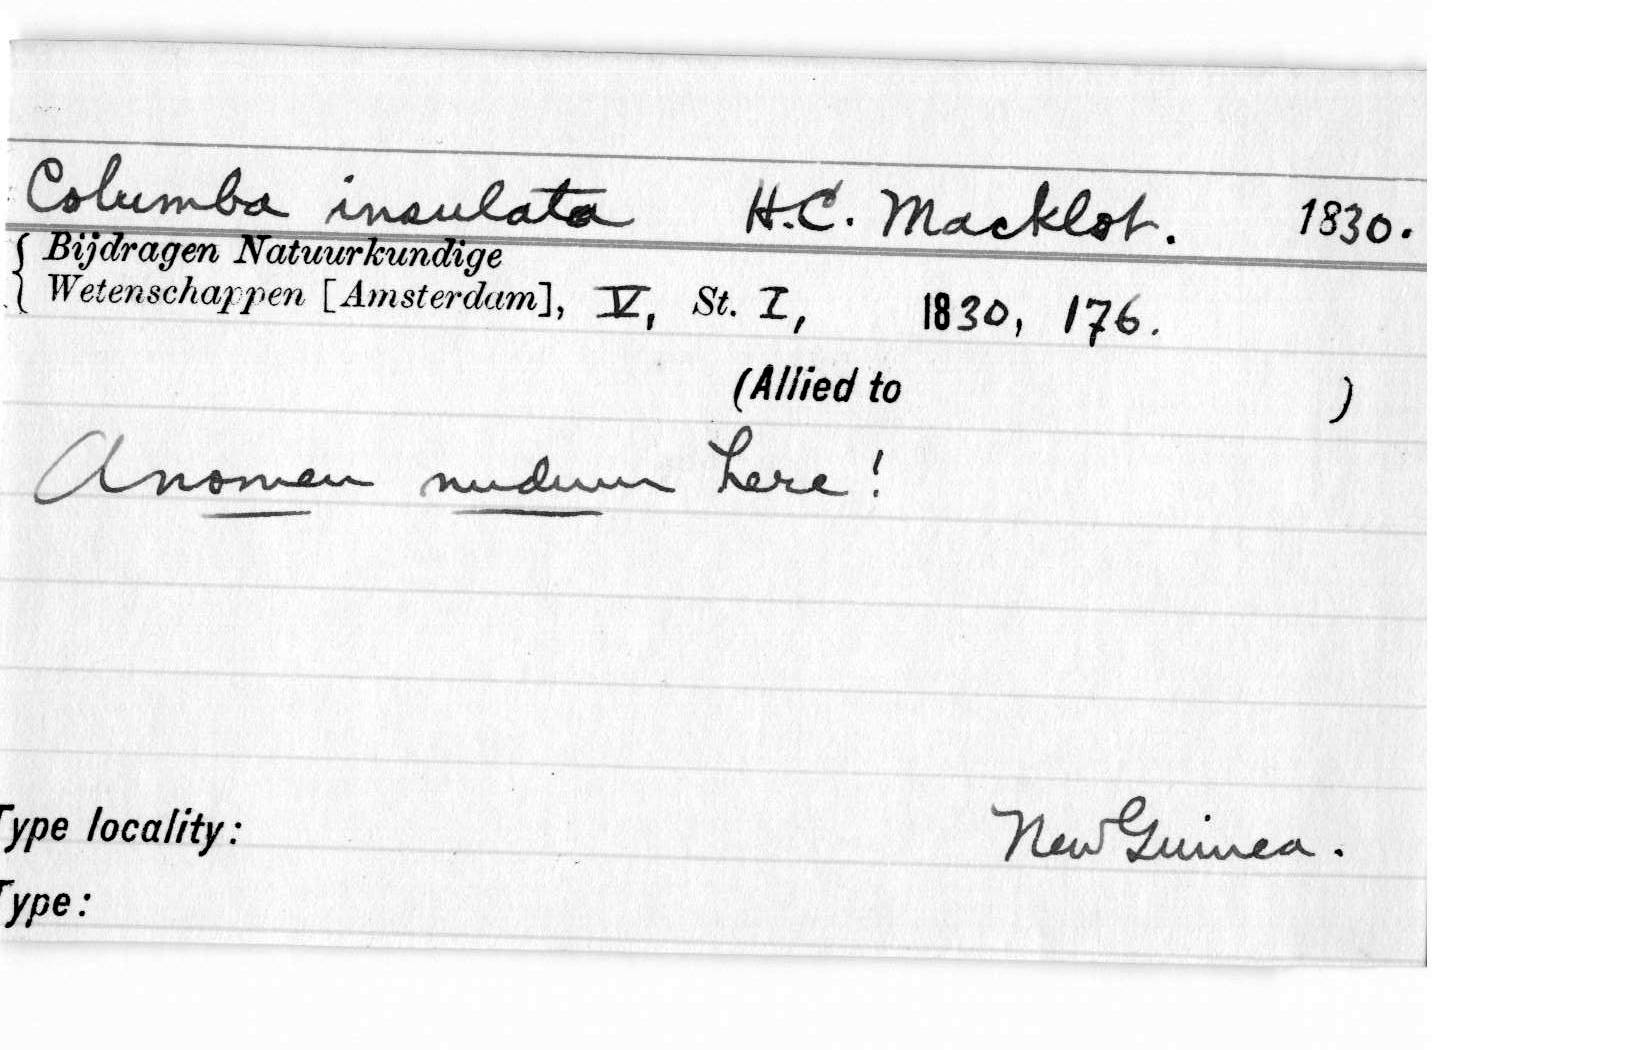 Columba insulata H.C. Macklot. 1830.
Bijdragen Natuurkundige
Wetenschappen [Amsterdam], V, St. I, 1830, 176.
(Allied to )
A nomen nudum here!
Type locality: New Guinea.
Type: